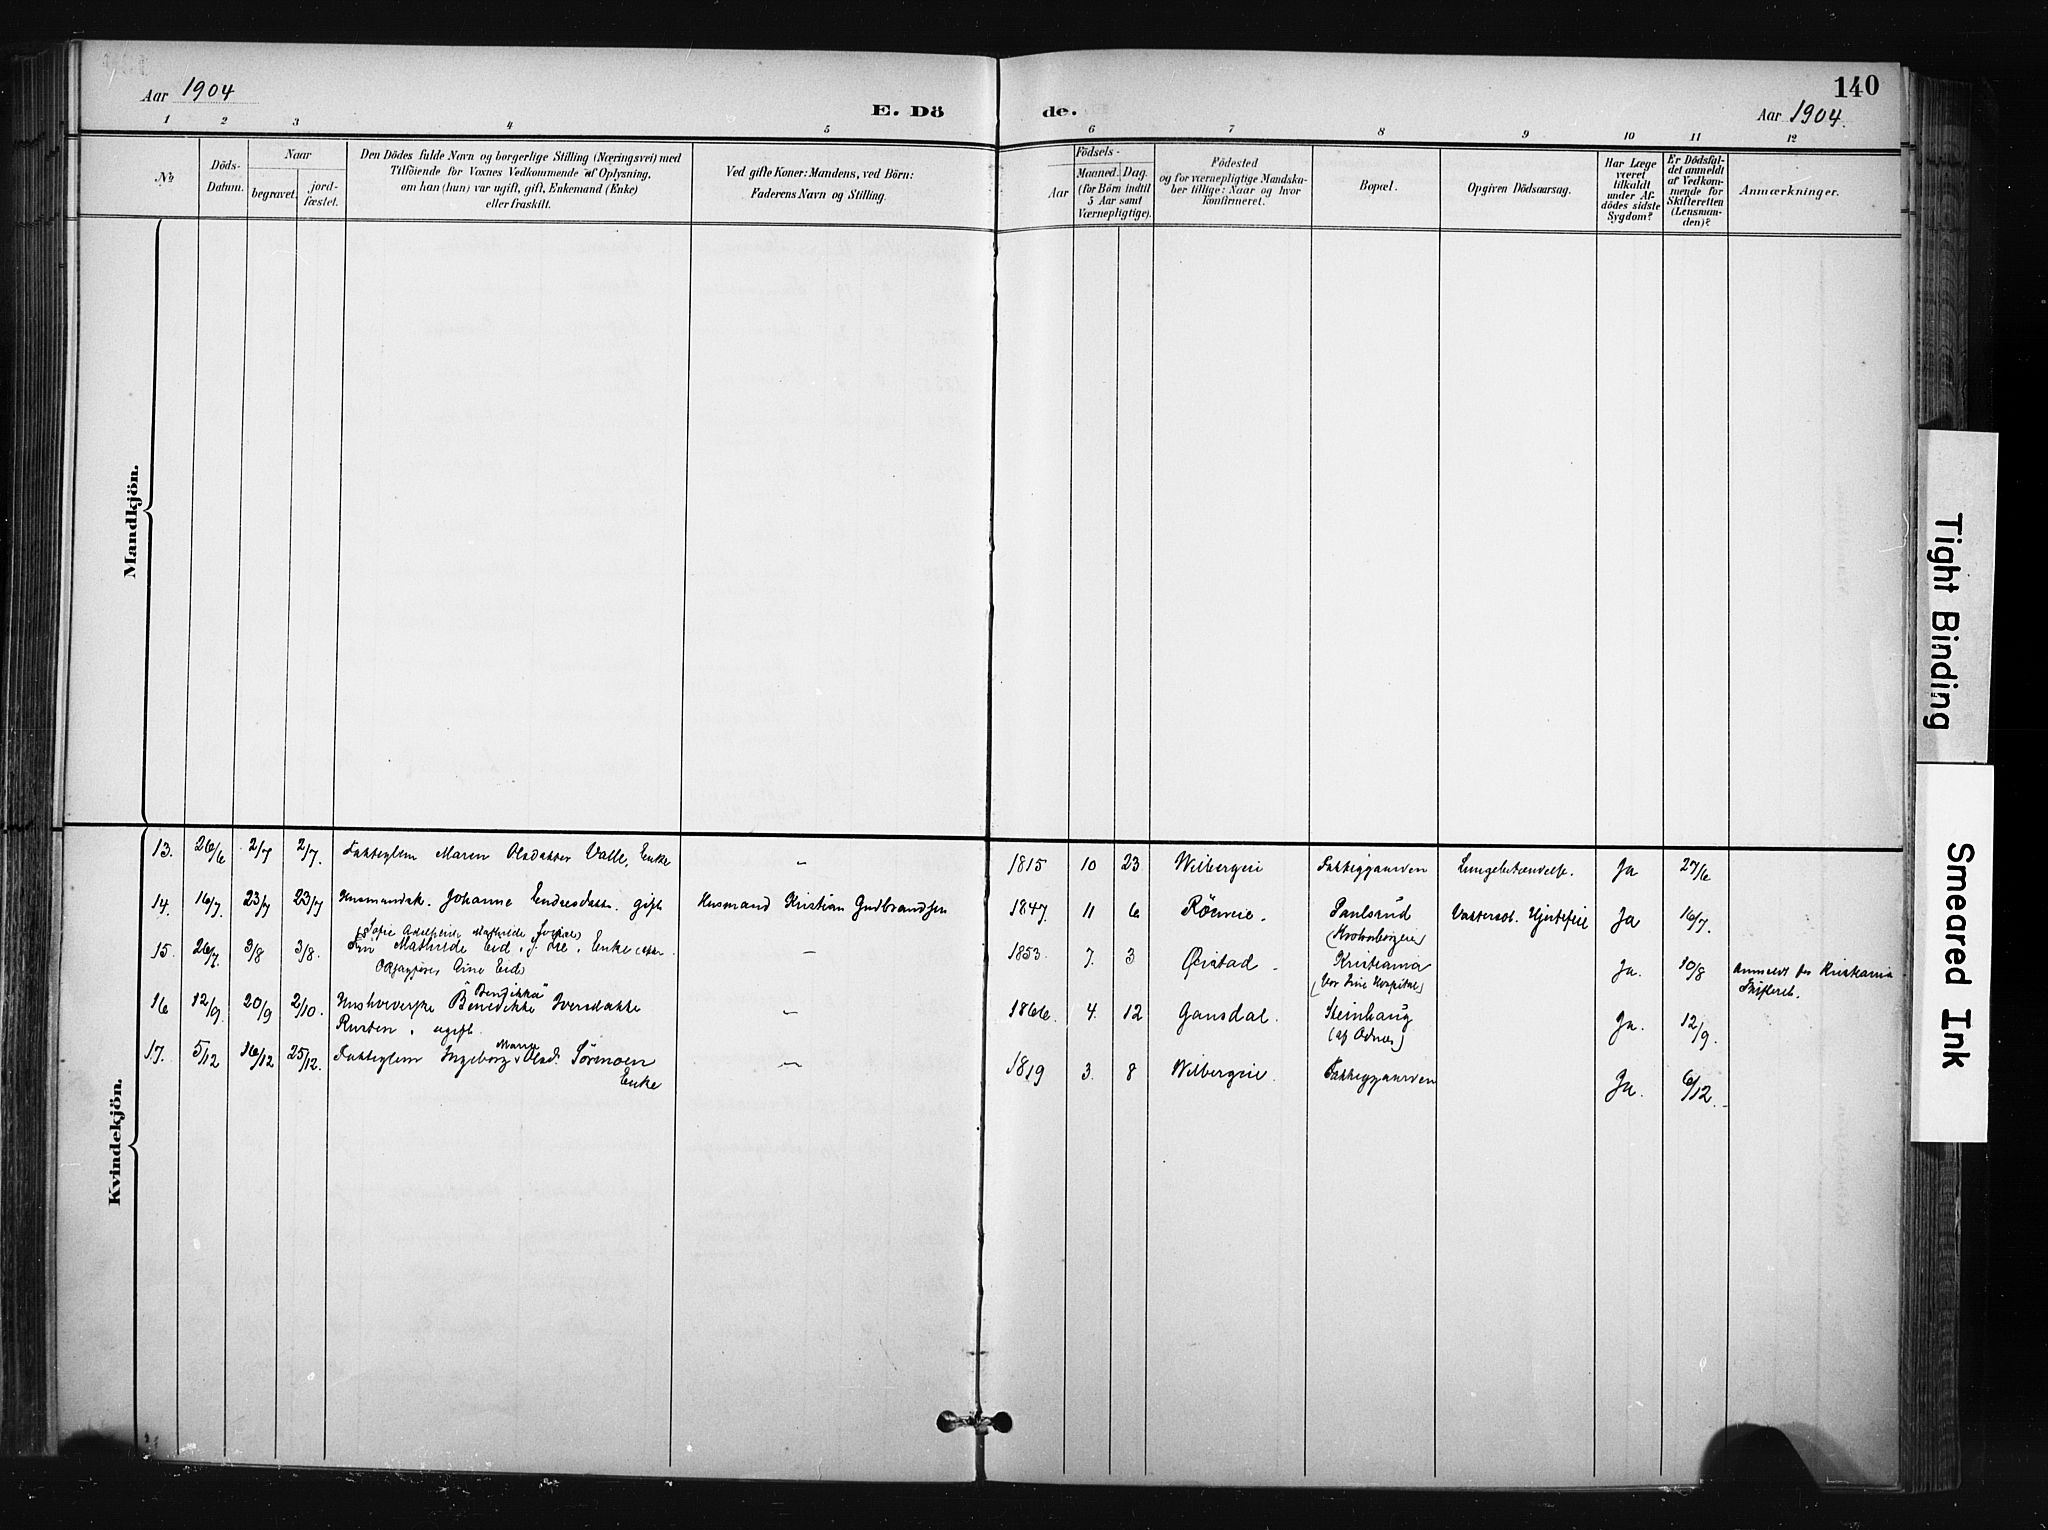 Aar 1904
E. Dö de.
140
Aar 1904.
1 2 3 4 5 6 7 8 9 10 11 12
№
Döds-
Datum.
Naar
begravet.
jord-
fæstet.
Den Dödes fulde Navn og borgerlige Stilling (Næringsvei) med
Tilföiende for Voxnes Vedkommende af Oplysning,
om han (hun) var ugift, gift, Enkemand (Enke)
eller fraskilt.
Ved gifte Koner: Mandens, ved Börn:
Faderens Navn og Stilling.
Födsels-
Aar
Maaned. Dag.
(for Börn indtil
5 Aar samt
Værnepligtige).
Födested
og for værnepligtige Mandska-
ber tillige: Naar og hvor
konfirmeret.
Bopæl.
Opgiven Dödsaarsag.
Har Læge
været
tilkaldt
under Af-
dödes sidste
Sygdom?
Er Dödsfal-
det anmeldt
af Vedkom-
mende for
Skifteretten
(Lensman-
den)?
Anmærkninger.
Mandkjön.
Kvindekjön.
13. 26/6 2/7 2/7. Fattiglem Maren Olsdatter Valle, Enke – 1815 10 23 Wilbergeie Fattiggaarden Lungebetændelse. Ja 27/6
14. 16/7. 23/7 23/7 Husmandsk. Johanne Endresdatter gift Husmand Kristian Gudbrandsen 1847. 11 6 Paulsrud Hjertefeil Ja 16/7.
(Sofie Mathilde
15. 26/7. 3/8 3/8. Mathilde Eid, Enke – 1853. 7. 3 Kristiania Ja. 10/8 Anmeldt for Kristiania
Arne Eid Skifteret.
"Bendikka"
16 12/9. 20/9 2/10. Benedikte Iversdatter – 1866. 4. 12 Gaasdal. Steinhaug Ja. 12/9.
ugift.
Marie
17. 5/12 16/12 25/12. Fattiglem Ingeborg Olsd. Sörmoen – 1819 3. 8 Wilbergeie. Fattiggaarden Ja. 6/12.
Enke
Tight Binding
Smeared Ink